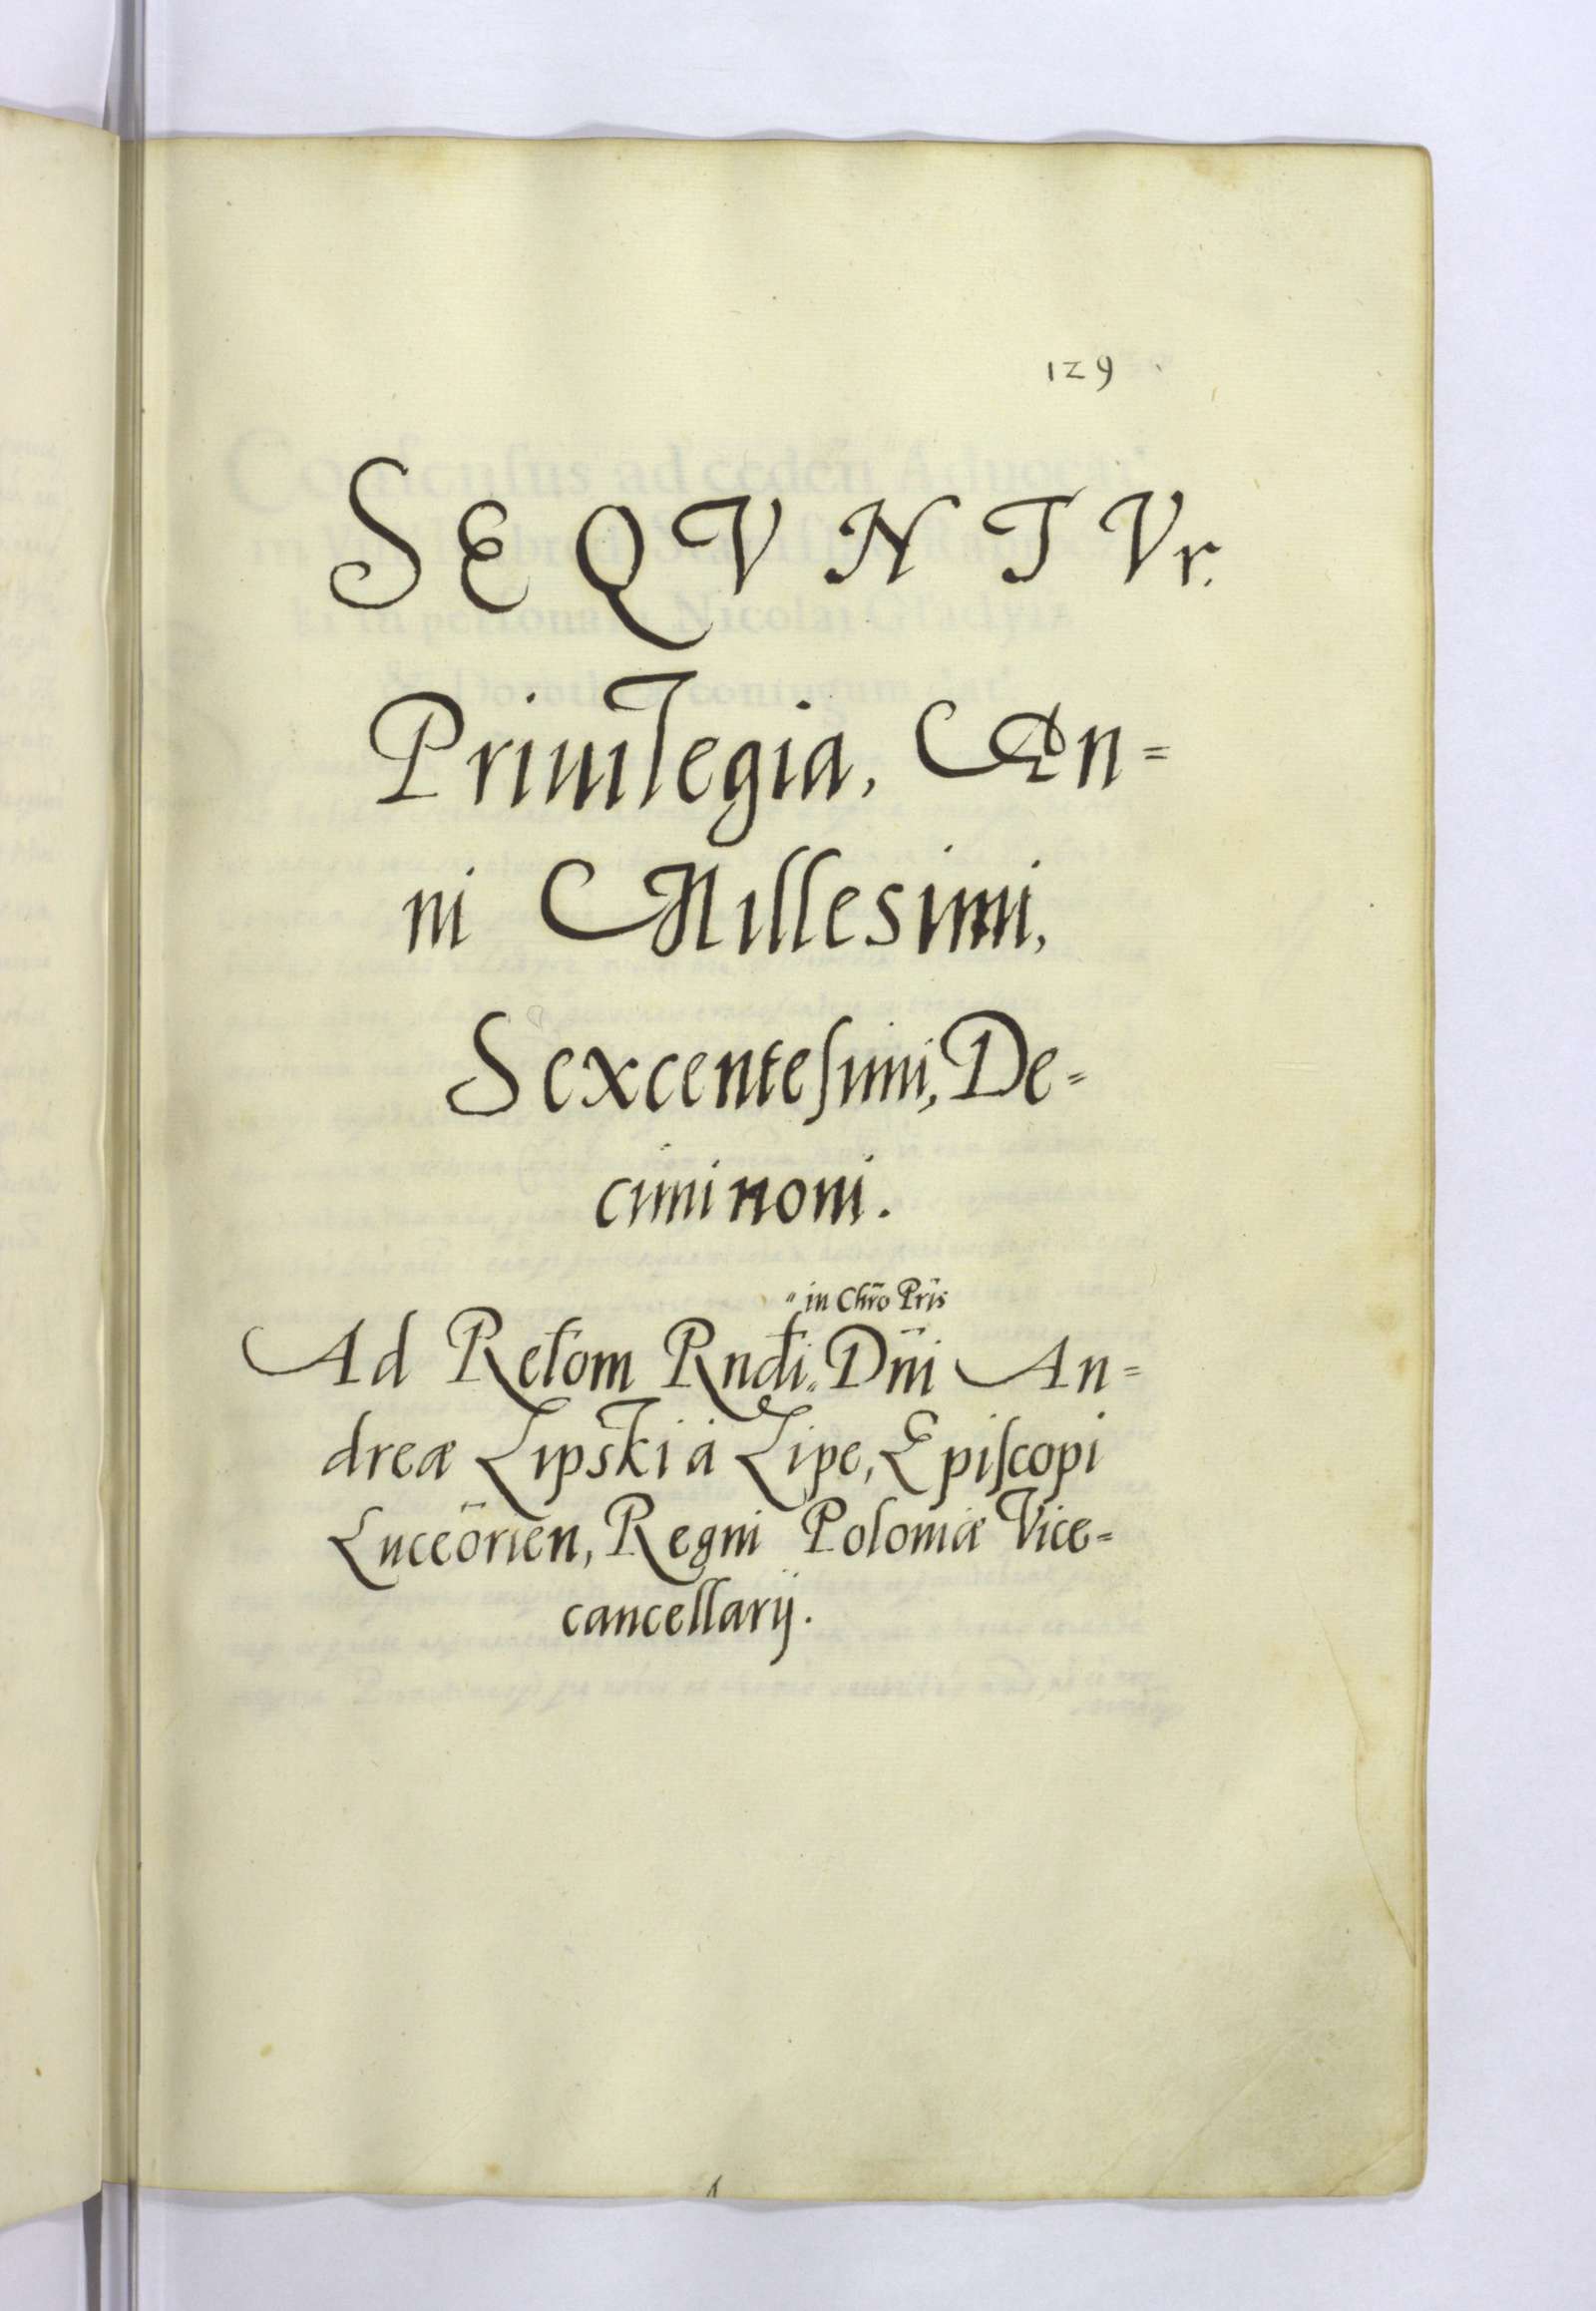 129
SEQVNTVr.
Priuilegia, An=
ni Millesimi,
Sexcentesimi, De=
cimi noni.
in Chro͞ Pr͞is
Ad Relo͞m Rnd͞i. Dn͞i An=
dreæ Lipski à Lipe, Episcopi
Luceorie͞n, Regni Poloniæ Vice=
cancellarij.